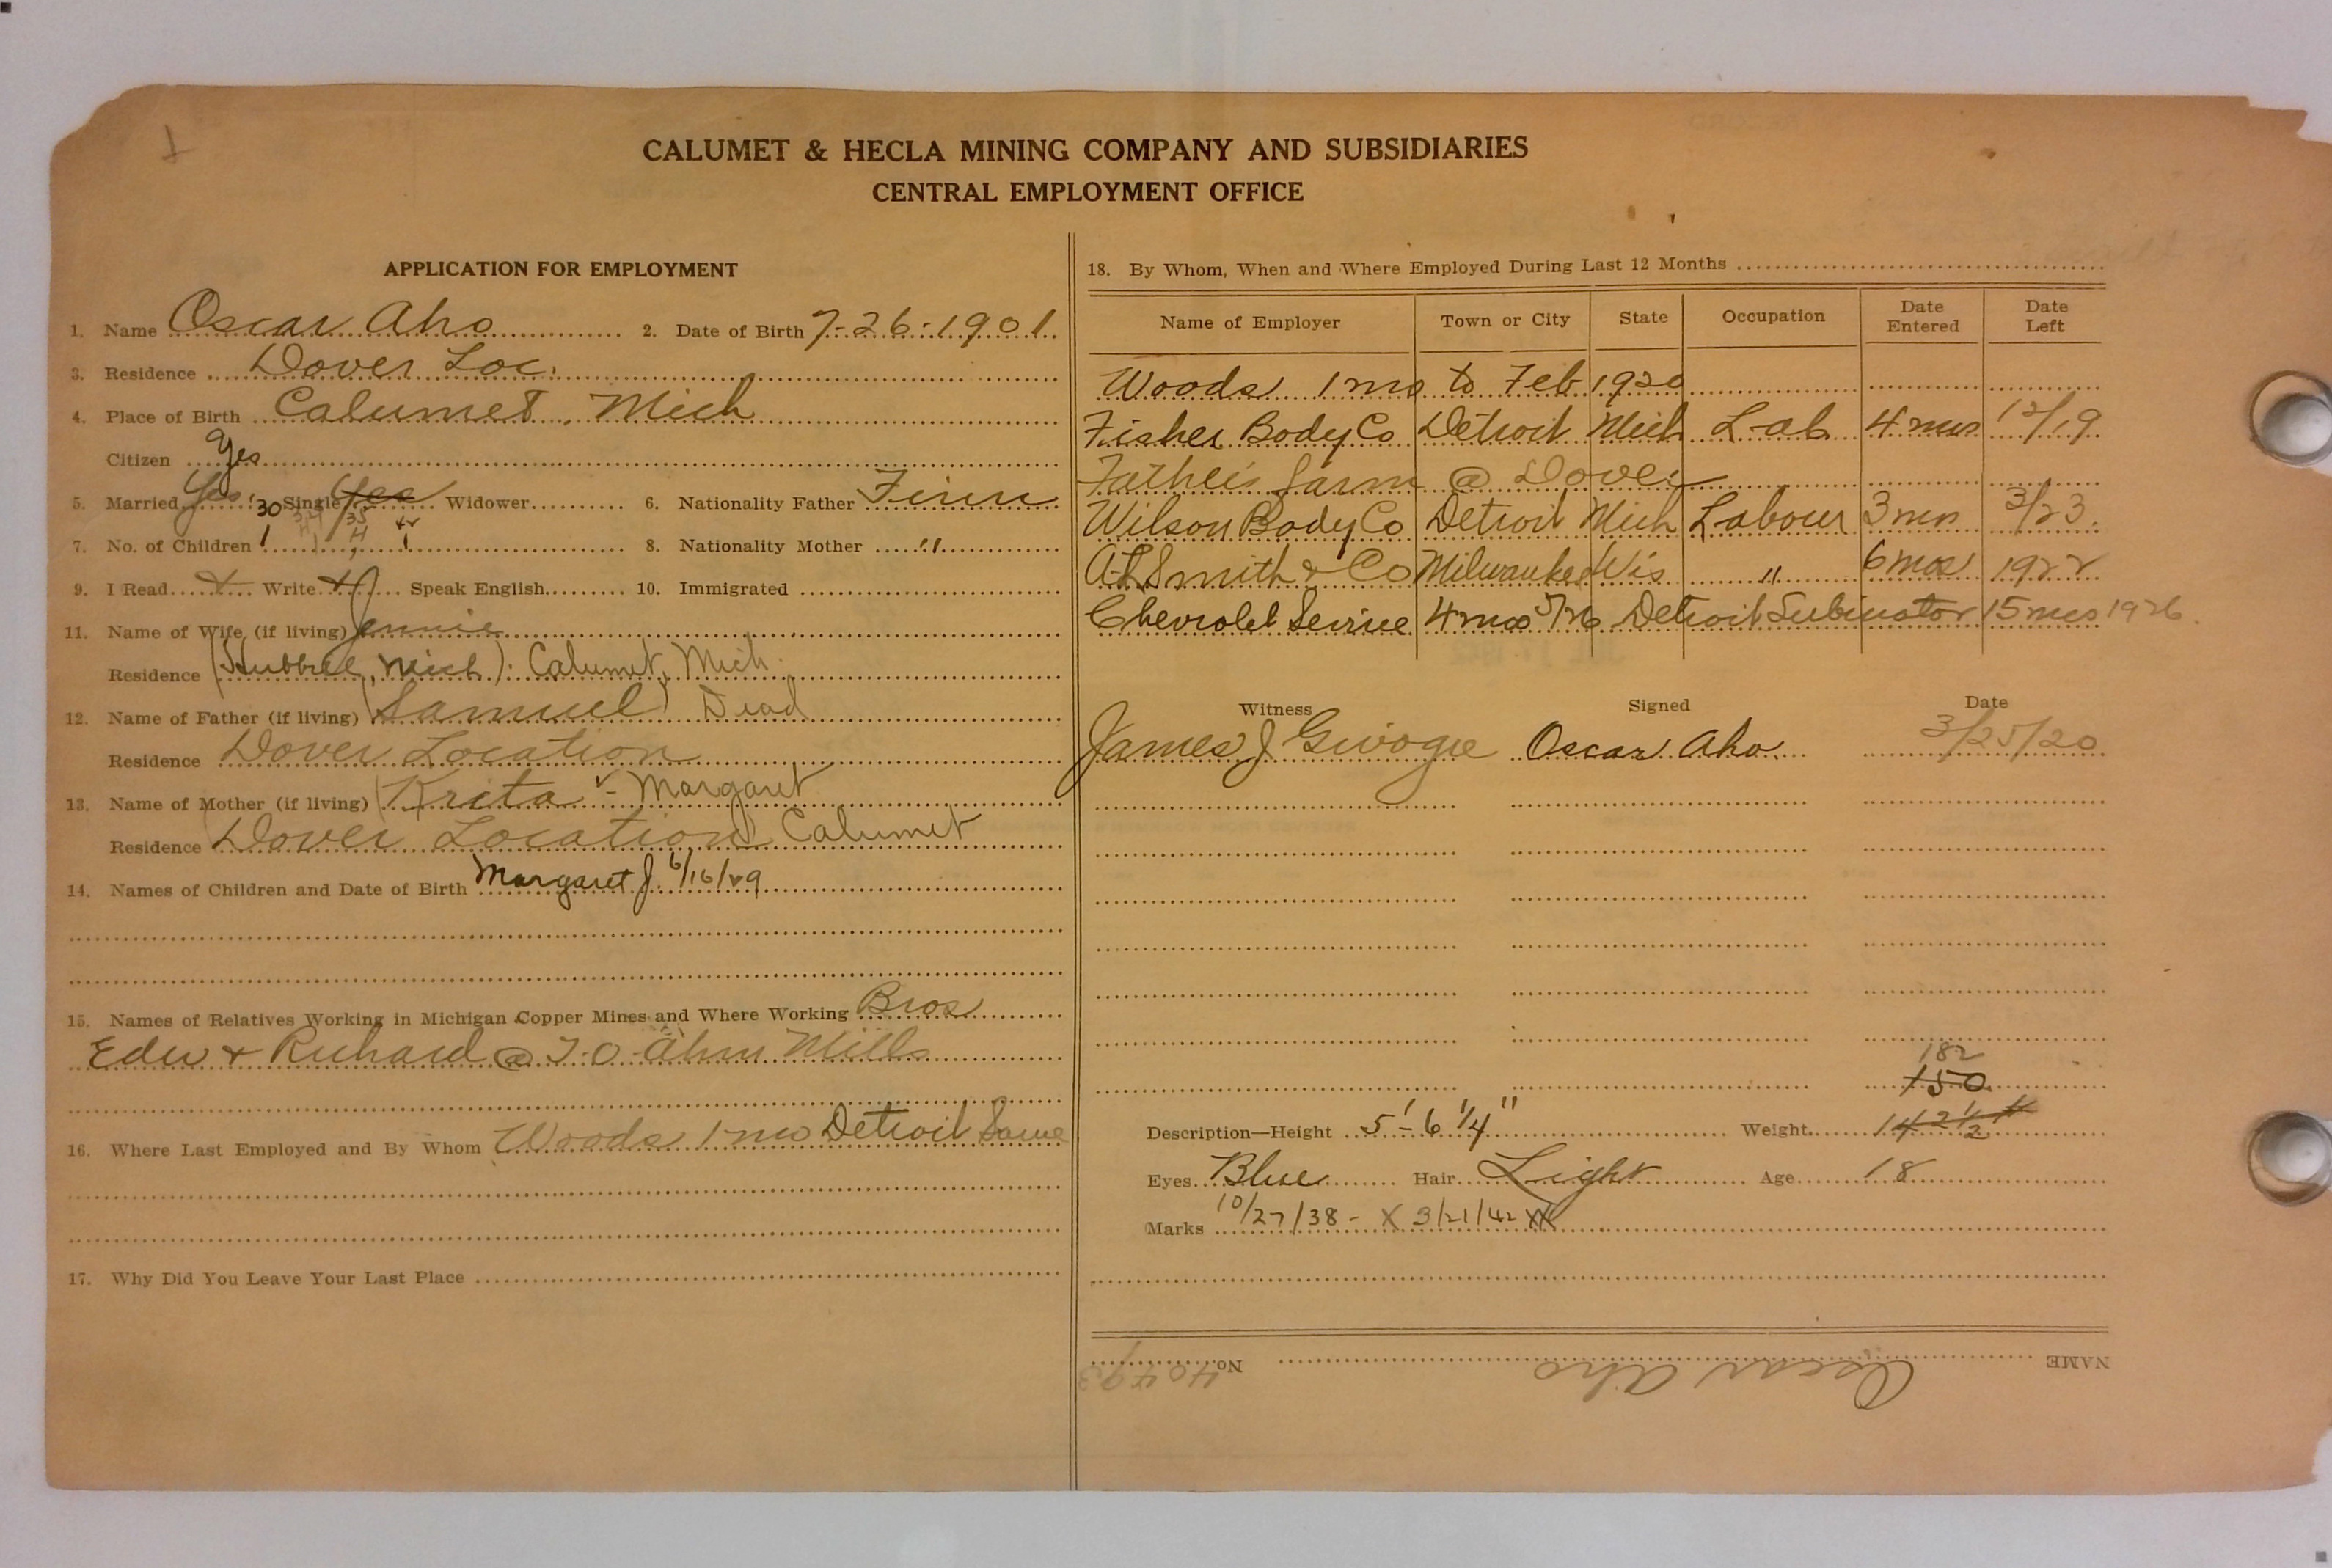 CALUMET & HECLA MINING COMPANY AND SUBSIDIARIES
CENTRAL EMPLOYMENT OFFICE
APPLICATION FOR EMPLOYMENT
1. Name Oscar Aho 2. Date of Birth 7-26-1901
3. Residence Dover Loc.
4. Place of Birth Calumet, Mich
Citizen Yes
5. Married Yes '30 Single Yes Widower 6. Nationality Father Finn
7. No. of Children 1 8. Nationality Mother "
9. I Read Write Speak English 10. Immigrated
11. Name of Wife (if living) Jennie
Residence (Hubbell, Mich): Calumet, Mich.
12. Name of Father (if living) (Samuel) Dead
Residence Dover Location
13. Name of Mother (if living) (Krita - Margaret
Residence Dover Location Calumet
14. Names of Children and Date of Birth Margaret J. 6/16/29
15. Names of Relatives Working in Michigan Copper Mines and Where Working Bros
Edw & Richard @ Mills
16. Where Last Employed and By Whom Woods 1 mo Detroit Same
17. Why Did You Leave Your Last Place
18. By Whom, When and Where Employed During Last 12 Months
Name of Employer Town or City State Occupation Date Entered Date Left
Woods 1 mo to Feb 1920
Fisher Body Co Detroit Mich Lab 4 mos 12/19
Father's farm @ Dover
Wilson Body Co Detroit Mich Labour 3 mos 3/23.
Smith & Co Milwaukee Wis " 6 mos 1922
Chevrolet Service 4 mos 5/26 Detroit Lubricator 15 mos 1926.
Witness Signed Date
James J Oscar Aho 3/25/20
182
150
Description—Height 5'-6 1/4" Weight 142 1/2 #
Eyes Blue Hair Light Age 18
Marks 10/27/38 - X 3/21/42
NAME Oscar Aho No. 40493